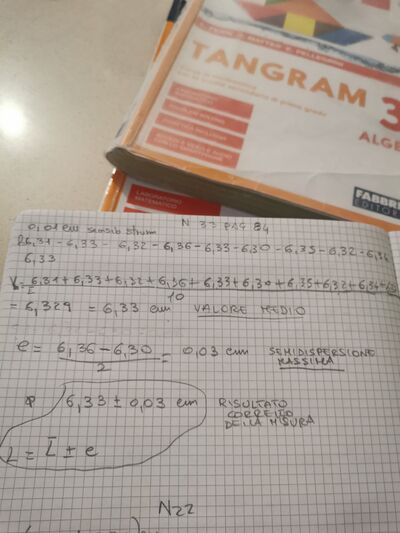 TANGRAM 3
ALGE
FABBRI
EDITOR
LABORATORIO
MATEMATICO
0,01 cm sensib strum N 33 PAG 84
6,31 - 6,33 - 6,32 - 6,36 - 6,33 - 6,30 - 6,35 - 6,32 - 6,34
6,33
6,31 + 6,33 + 6,32 + 6,36 + 6,33 + 6,30 + 6,35 + 6,32 + 6,34 +
10
= 6,329 = 6,33 cm VALORE MEDIO
e = 6,36 - 6,30 = 0,03 cm SEMIDISPERSIONE
2 MASSIMA
6,33 ± 0,03 cm RISULTATO
CORRETTO
DELLA MISURA
L = L̄ ± e
N22